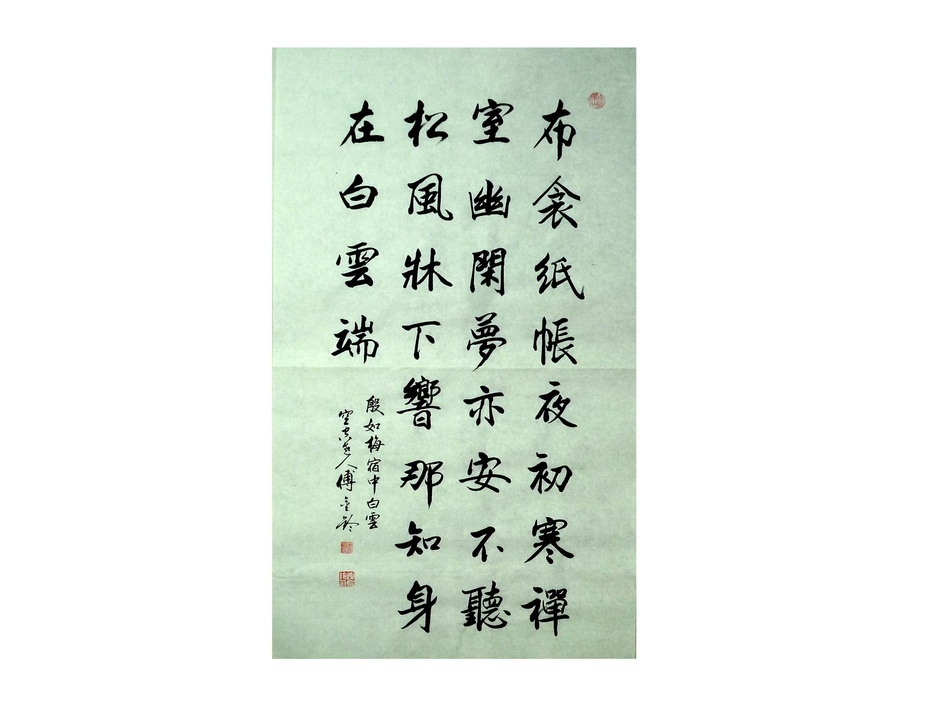 布衾紙帳夜初寒禪
室幽閑夢亦安不聽
松風牀下響那知身
在白雲端
殷如梅宿中白雲
人傅金